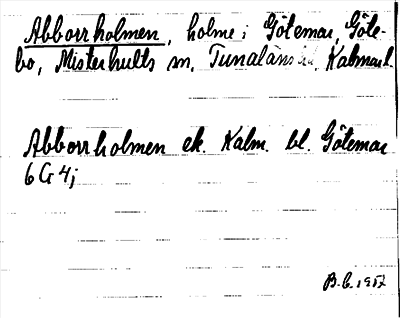 Abborrholmen, holme i Götemar, Göte-
bo, Misterhults sn, Tunaläns hd, Kalmar l.
Abborrholmen ek. Kalm. bl. Götemar
6 G 4j
B.C. 1957